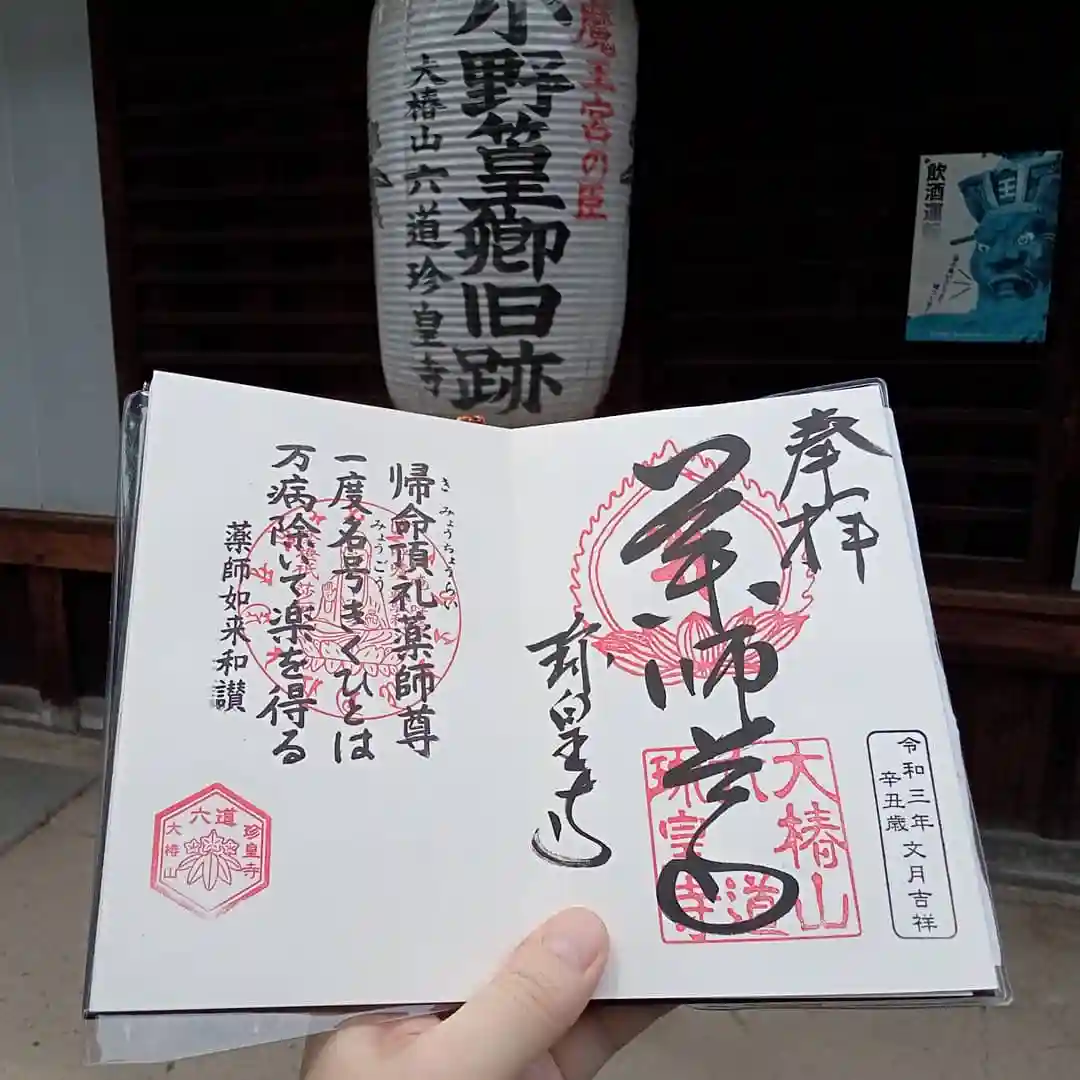 魔王宮の臣
小野篁卿旧跡
大椿山六道珍皇寺
飲酒運
奉拝
薬師尊
珍皇寺
大椿山
六道
珍皇寺
令和三年文月吉祥
辛丑歳
帰命頂礼薬師尊
きみょうちょうらい
一度名号きくひとは
みょうごう
万病除いて楽を得る
薬師如来和讃
六道
珍皇寺
大椿山